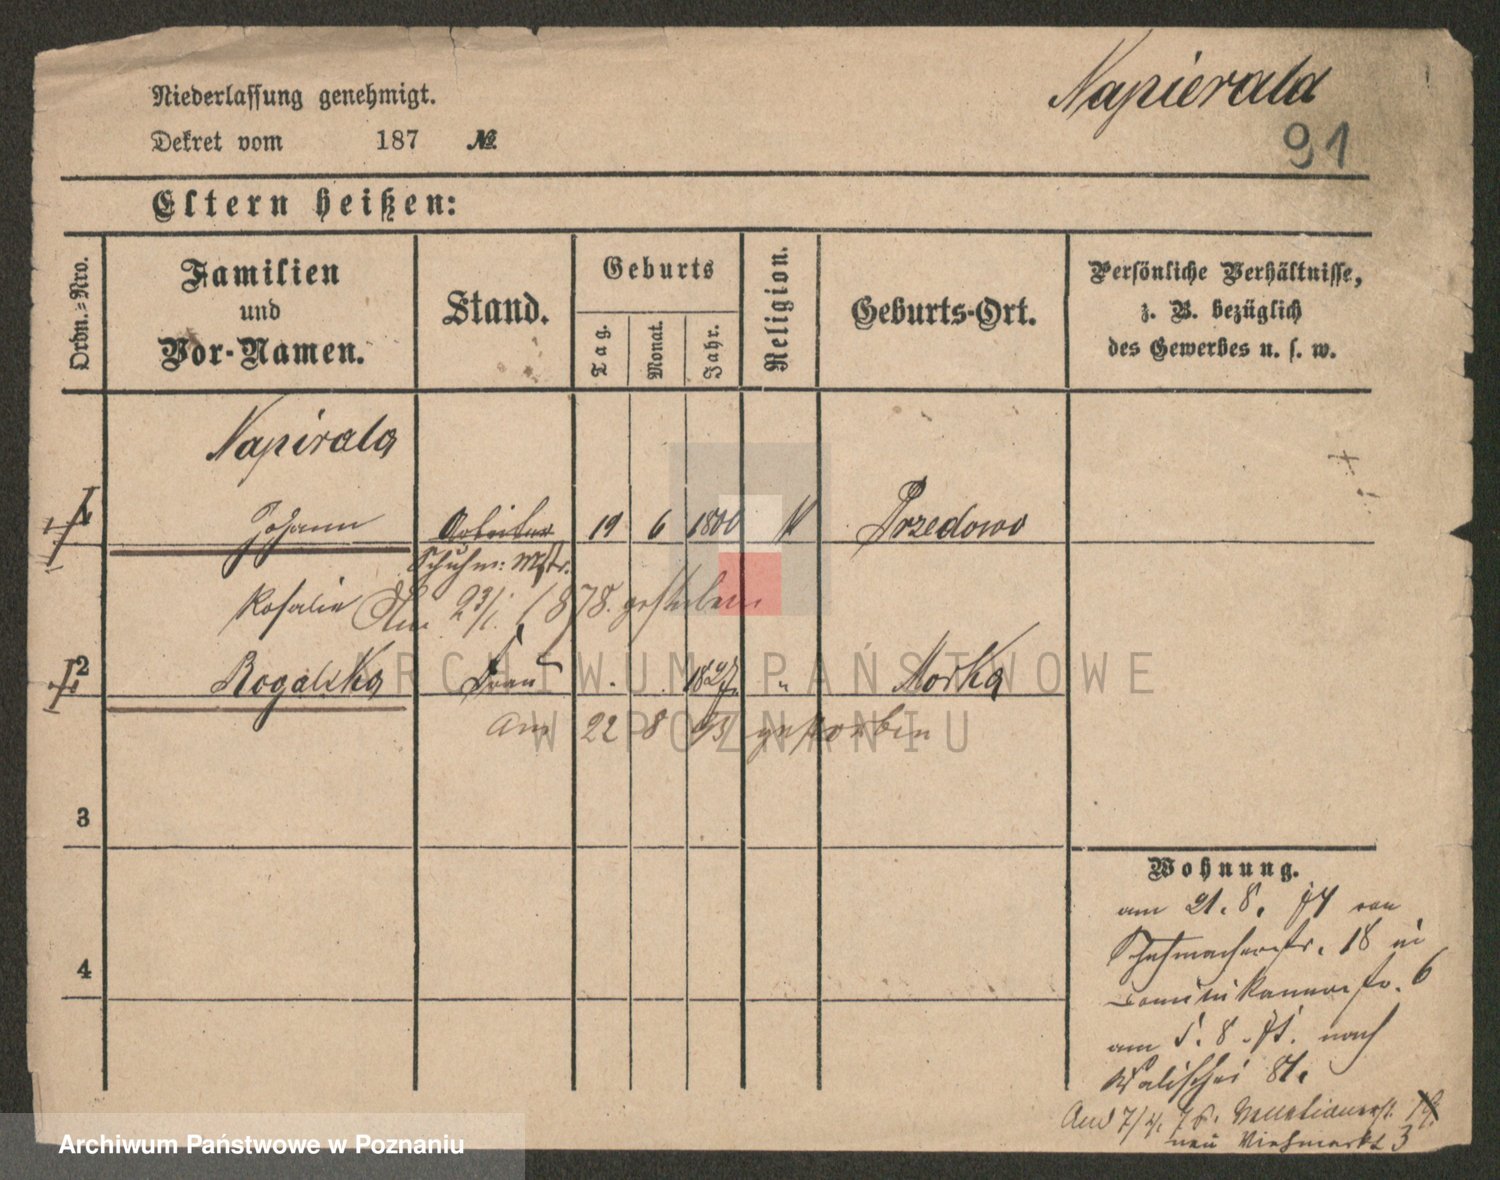 Niederlassung genehmigt.
Napierala
Dekret vom 187 №
91
Eltern heißen:
Ordn.-Nro.
Familien
und
Vor-Namen.
Stand.
Geburts
Tag.
Monat.
Jahr.
Religion.
Geburts-Ort.
Persönliche Verhältnisse,
z. B. bezüglich
des Gewerbes u. s. w.
Napirala
1 Johann Arbeiter 19 6 1800 K Przedowo
Schuhm: Mstr.
Rosalie Am 23/1. 1878. gestorben
2 Rogalska Frau . . 1827. " Morka
am 22 8 93 gestorben
3
4
Wohnung.
am 21. 8. 74 von
Schuhmacherstr. 18 in
Dominikanerstr. 6
am 5. 8. 75. nach
Wallischei 81.
And 7/4. 76. 19.
neu Viehmarkt 3
ARCHIWUM PAŃSTWOWE
W POZNANIU
Archiwum Państwowe w Poznaniu